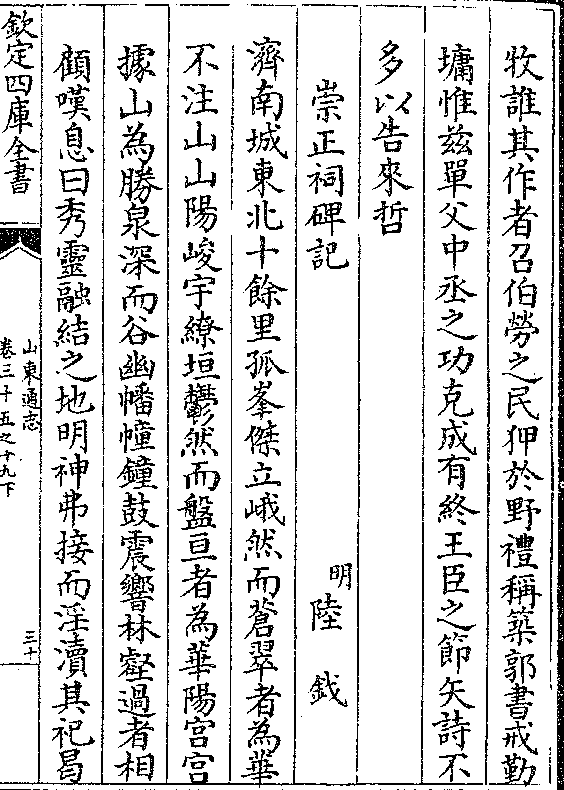 牧誰其作者召伯勞之民狎於野禮稱築郭書戒勤
墉惟茲單父中丞之功克成有終王臣之節矢詩不
多以告來哲
崇正祠碑記
明陸釴
濟南城東北十餘里孤峯傑立峨然而蒼翠者為華
不注山山陽峻宇繚垣鬱然而盤亘者為華陽宮宮
據山為勝泉深而谷幽幡幢鐘鼓震響林壑過者相
顧嘆息曰秀靈融結之地明神弗接而淫瀆其祀曷
欽定四庫全書
山東通志
卷三十五之十九下
三十